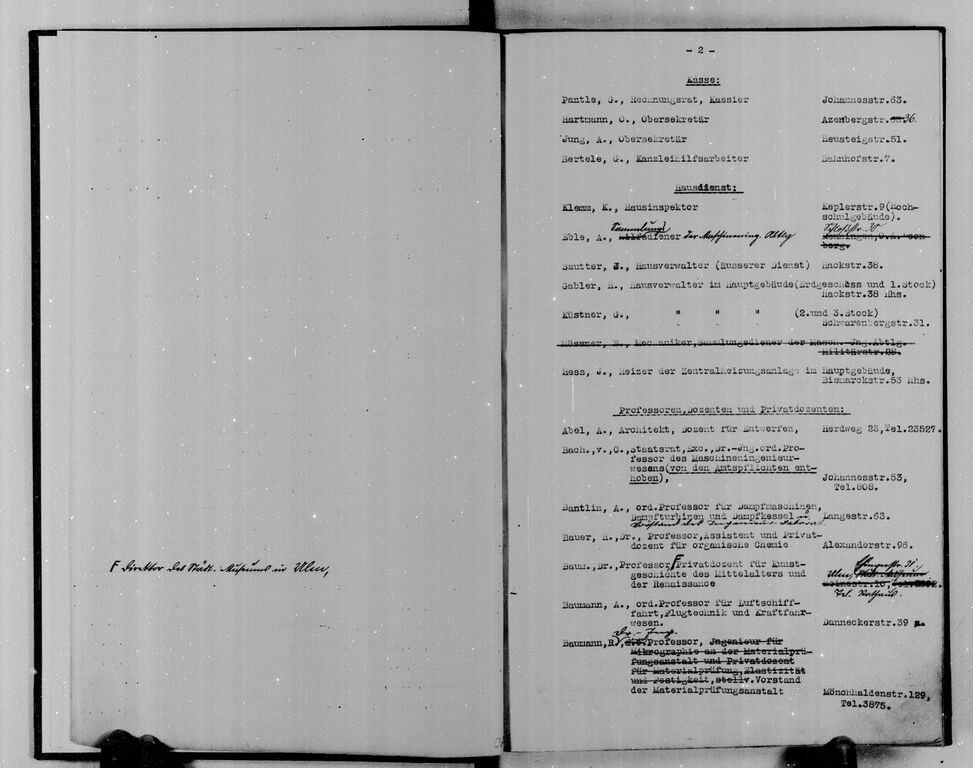 F Direktor des Städt. Museums in Ulm,
- 2 -
Kasse:
Pantle, G., Rechnungsrat, Kassier Johannesstr.63.
Hartmann, O., Obersekretär Azenbergstr. 36.
Jung, A., Obersekretär Heusteigstr.51.
Bertele, G., Kanzleihilfsarbeiter Bahnhofstr.7.
Hausdienst:
Klemm, K., Hausinspektor Keplerstr.9(Hoch-
schulgebäude).
Sammlungs Schloßstr. 30
Eble, A., Hilfsdiener Der Maschinening. Abtlg
berg.
Sautter, J., Hausverwalter (äusserer Dienst) Hackstr.38.
Gabler, H., Hausverwalter im Hauptgebäude(Erdgeschoss und 1.Stock)
Hackstr.38 Hhs.
Küstner, G., " " " (2.und 3.Stock)
Schwarenbergstr.31.
Mössner, E., Mechaniker,Sammlungsdiener der Masch.-Jng.Abtlg.
Militärstr.28.
Hess, J., Heizer der Zentralheizungsanlage im Hauptgebäude,
Bismarckstr.53 Hhs.
Professoren,Dozenten und Privatdozenten:
Abel, A., Architekt, Dozent für Entwerfen, Herdweg 23,Tel.23527.
Bach,v.,C.,Staatsrat,Exc.,Dr.-Jng.ord.Pro-
fessor des Maschineningenieur-
wesens(von den Amtspflichten ent-
hoben), Johannesstr.53,
Tel.808.
Bantlin, A., ord.Professor für Dampfmaschinen,
Dampfturbinen und Dampfkessel u. Langestr.63.
Vorstand des Ingenieur-Laborat.
Bauer, H.,Dr., Professor,Assistent und Privat-
dozent für organische Chemie Alexanderstr.96.
Baum,Dr.,Professor,F Privatdozent für Kunst-
geschichte des Mittelalters und Ulm,
der Renaissance Tel. Rathaus.
Baumann, A., ord.Professor für Luftschiff-
fahrt,Flugtechnik und Kraftfahr-
wesen. Danneckerstr.39
Dr.-Jng.
Baumann,R., Professor, Jngenieur für
Mikrographie an der Materialprü-
fungsanstalt und Privatdozent
für Materialprüfung,Elastizität
und Festigkeit,stellv.Vorstand
der Materialprüfungsanstalt Mönchhaldenstr.129,
Tel.3875.